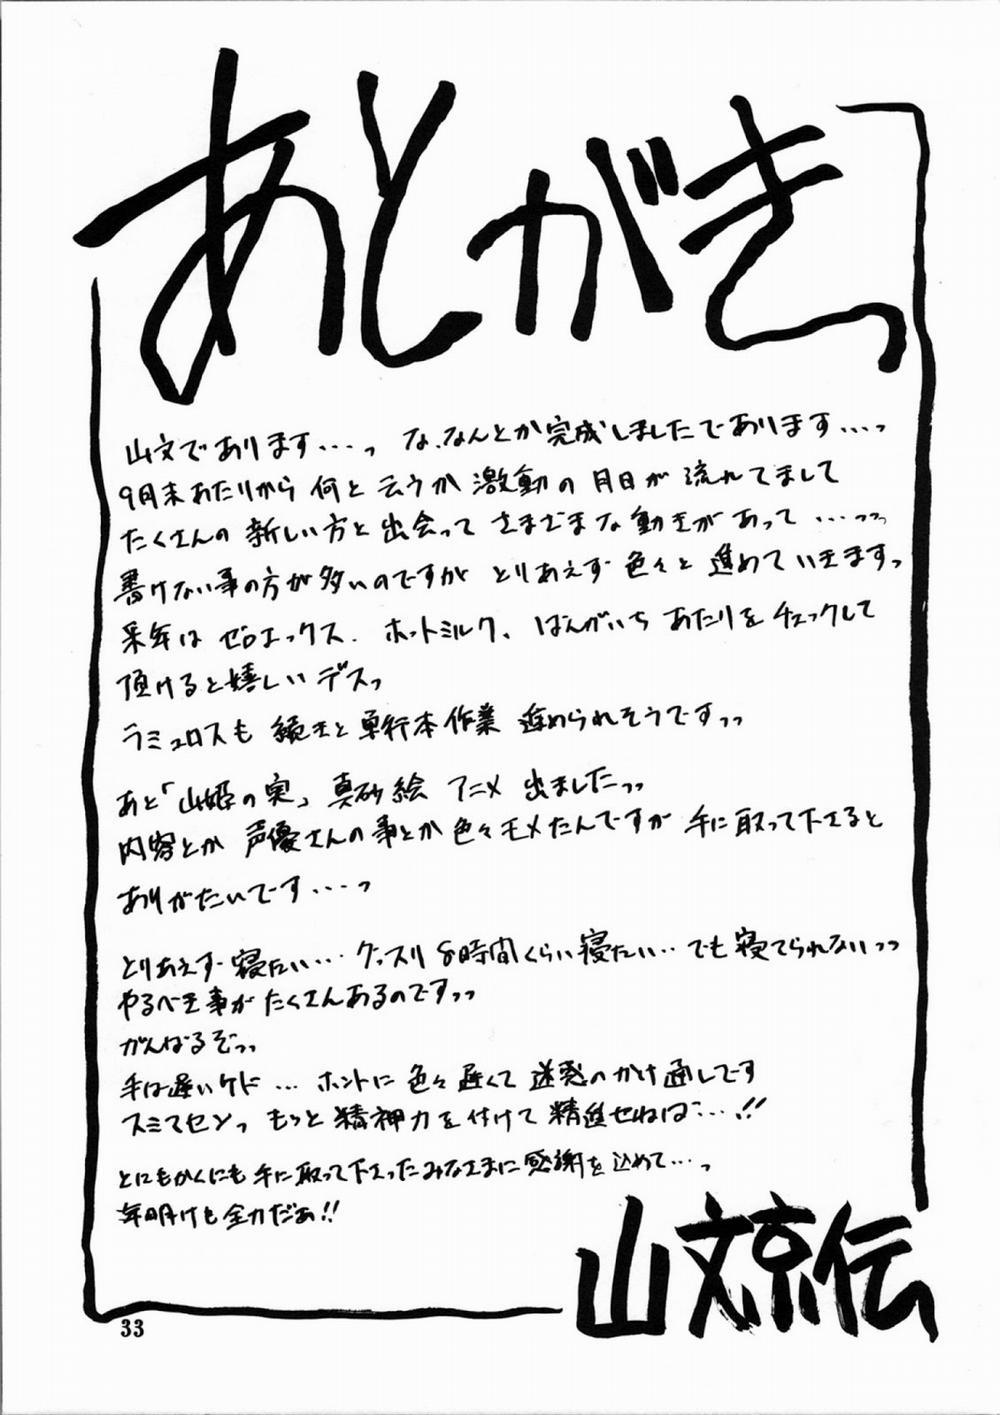 あとがきっ
山文であります・・・っ な、なんとか完成しましたであります・・・っ
9月末あたりから 何と云うか 激動の 月日が 流れてまして
たくさんの 新しい方と 出会って さまざまな 動きが あって ・・・っっ
書けない事の方が多いのですが とりあえず 色々と 進めていきますっ
来年は ゼロエックス、ホットミルク、はんがいち あたりを チェックして
頂けると嬉しい デスっ
ラミュロスも 続きと 単行本作業 進められそうですっっ
あと「山姫の実」真砂絵 アニメ 出ましたっっ
内容とか 声優さんの事とか 色々モメたんですが 手に取って下さると
ありがたいです・・・っ
とりあえず 寝たい・・・グッスリ 8時間くらい 寝たい・・でも 寝てられないっっ
やるべき事が たくさんあるのですっっ
がんばるぞっっ
手は遅いケド ・・・ ホントに 色々 遅くて 迷惑の かけ通しです
スミマセンっ もっと 精神力を 付けて 精進せねば・・・!!
とにもかくにも 手に取って下さったみなさまに 感謝を 込めて・・・っ
年明けも 全力だぁ!!
山文京伝
33